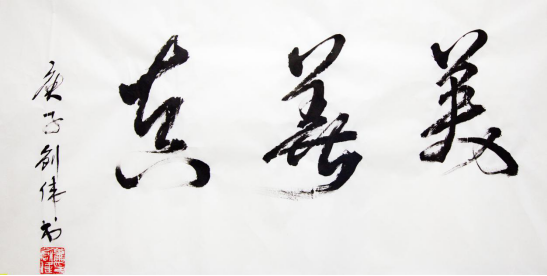 美善真
庚子剑伟书